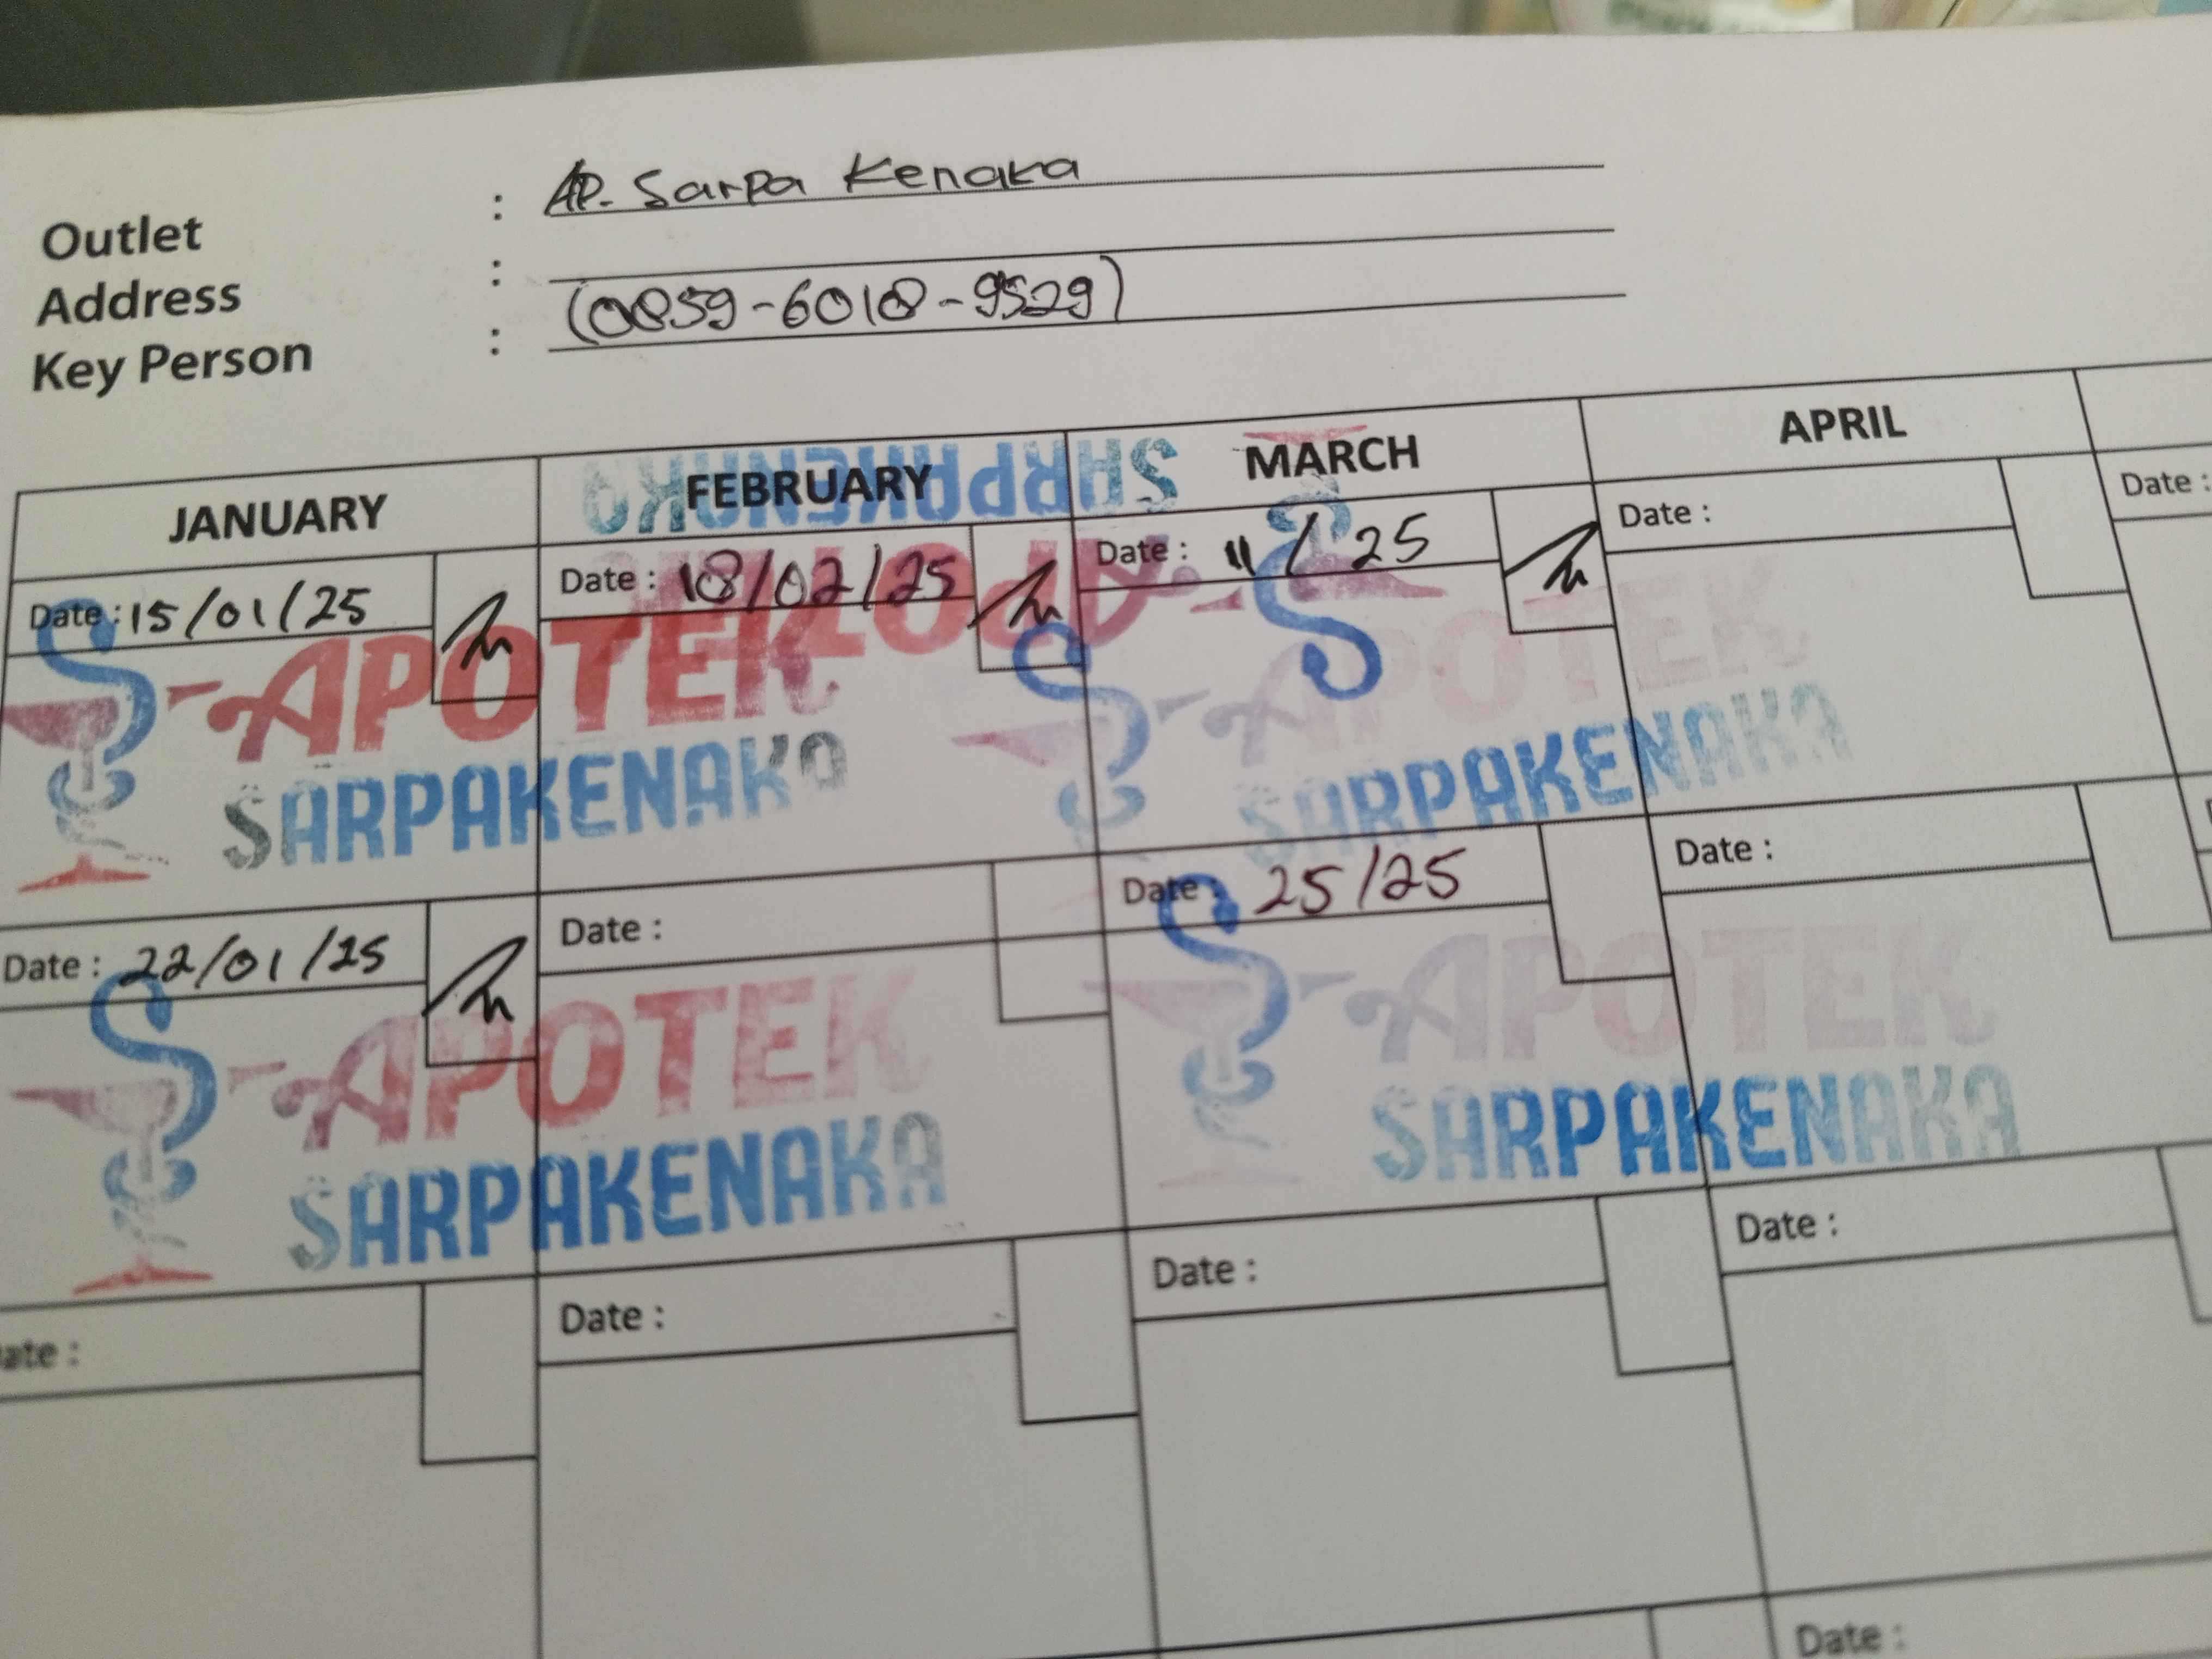 Outlet : AP. Sarpa Kenaka
Address :
Key Person : (0859-6018-9529)
JANUARY FEBRUARY MARCH APRIL
SARPAKENAKA
APOTEK
Date : 15/01/25 Date : 18/02/25 Date : 11/ 25 Date : Date :
APOTEK APOTEK
SARPAKENAKA SARPAKENAKA
Date : 22/01/25 Date : Date : 25/25 Date :
APOTEK APOTEK
SARPAKENAKA SARPAKENAKA
ate : Date : Date : Date :
Date :